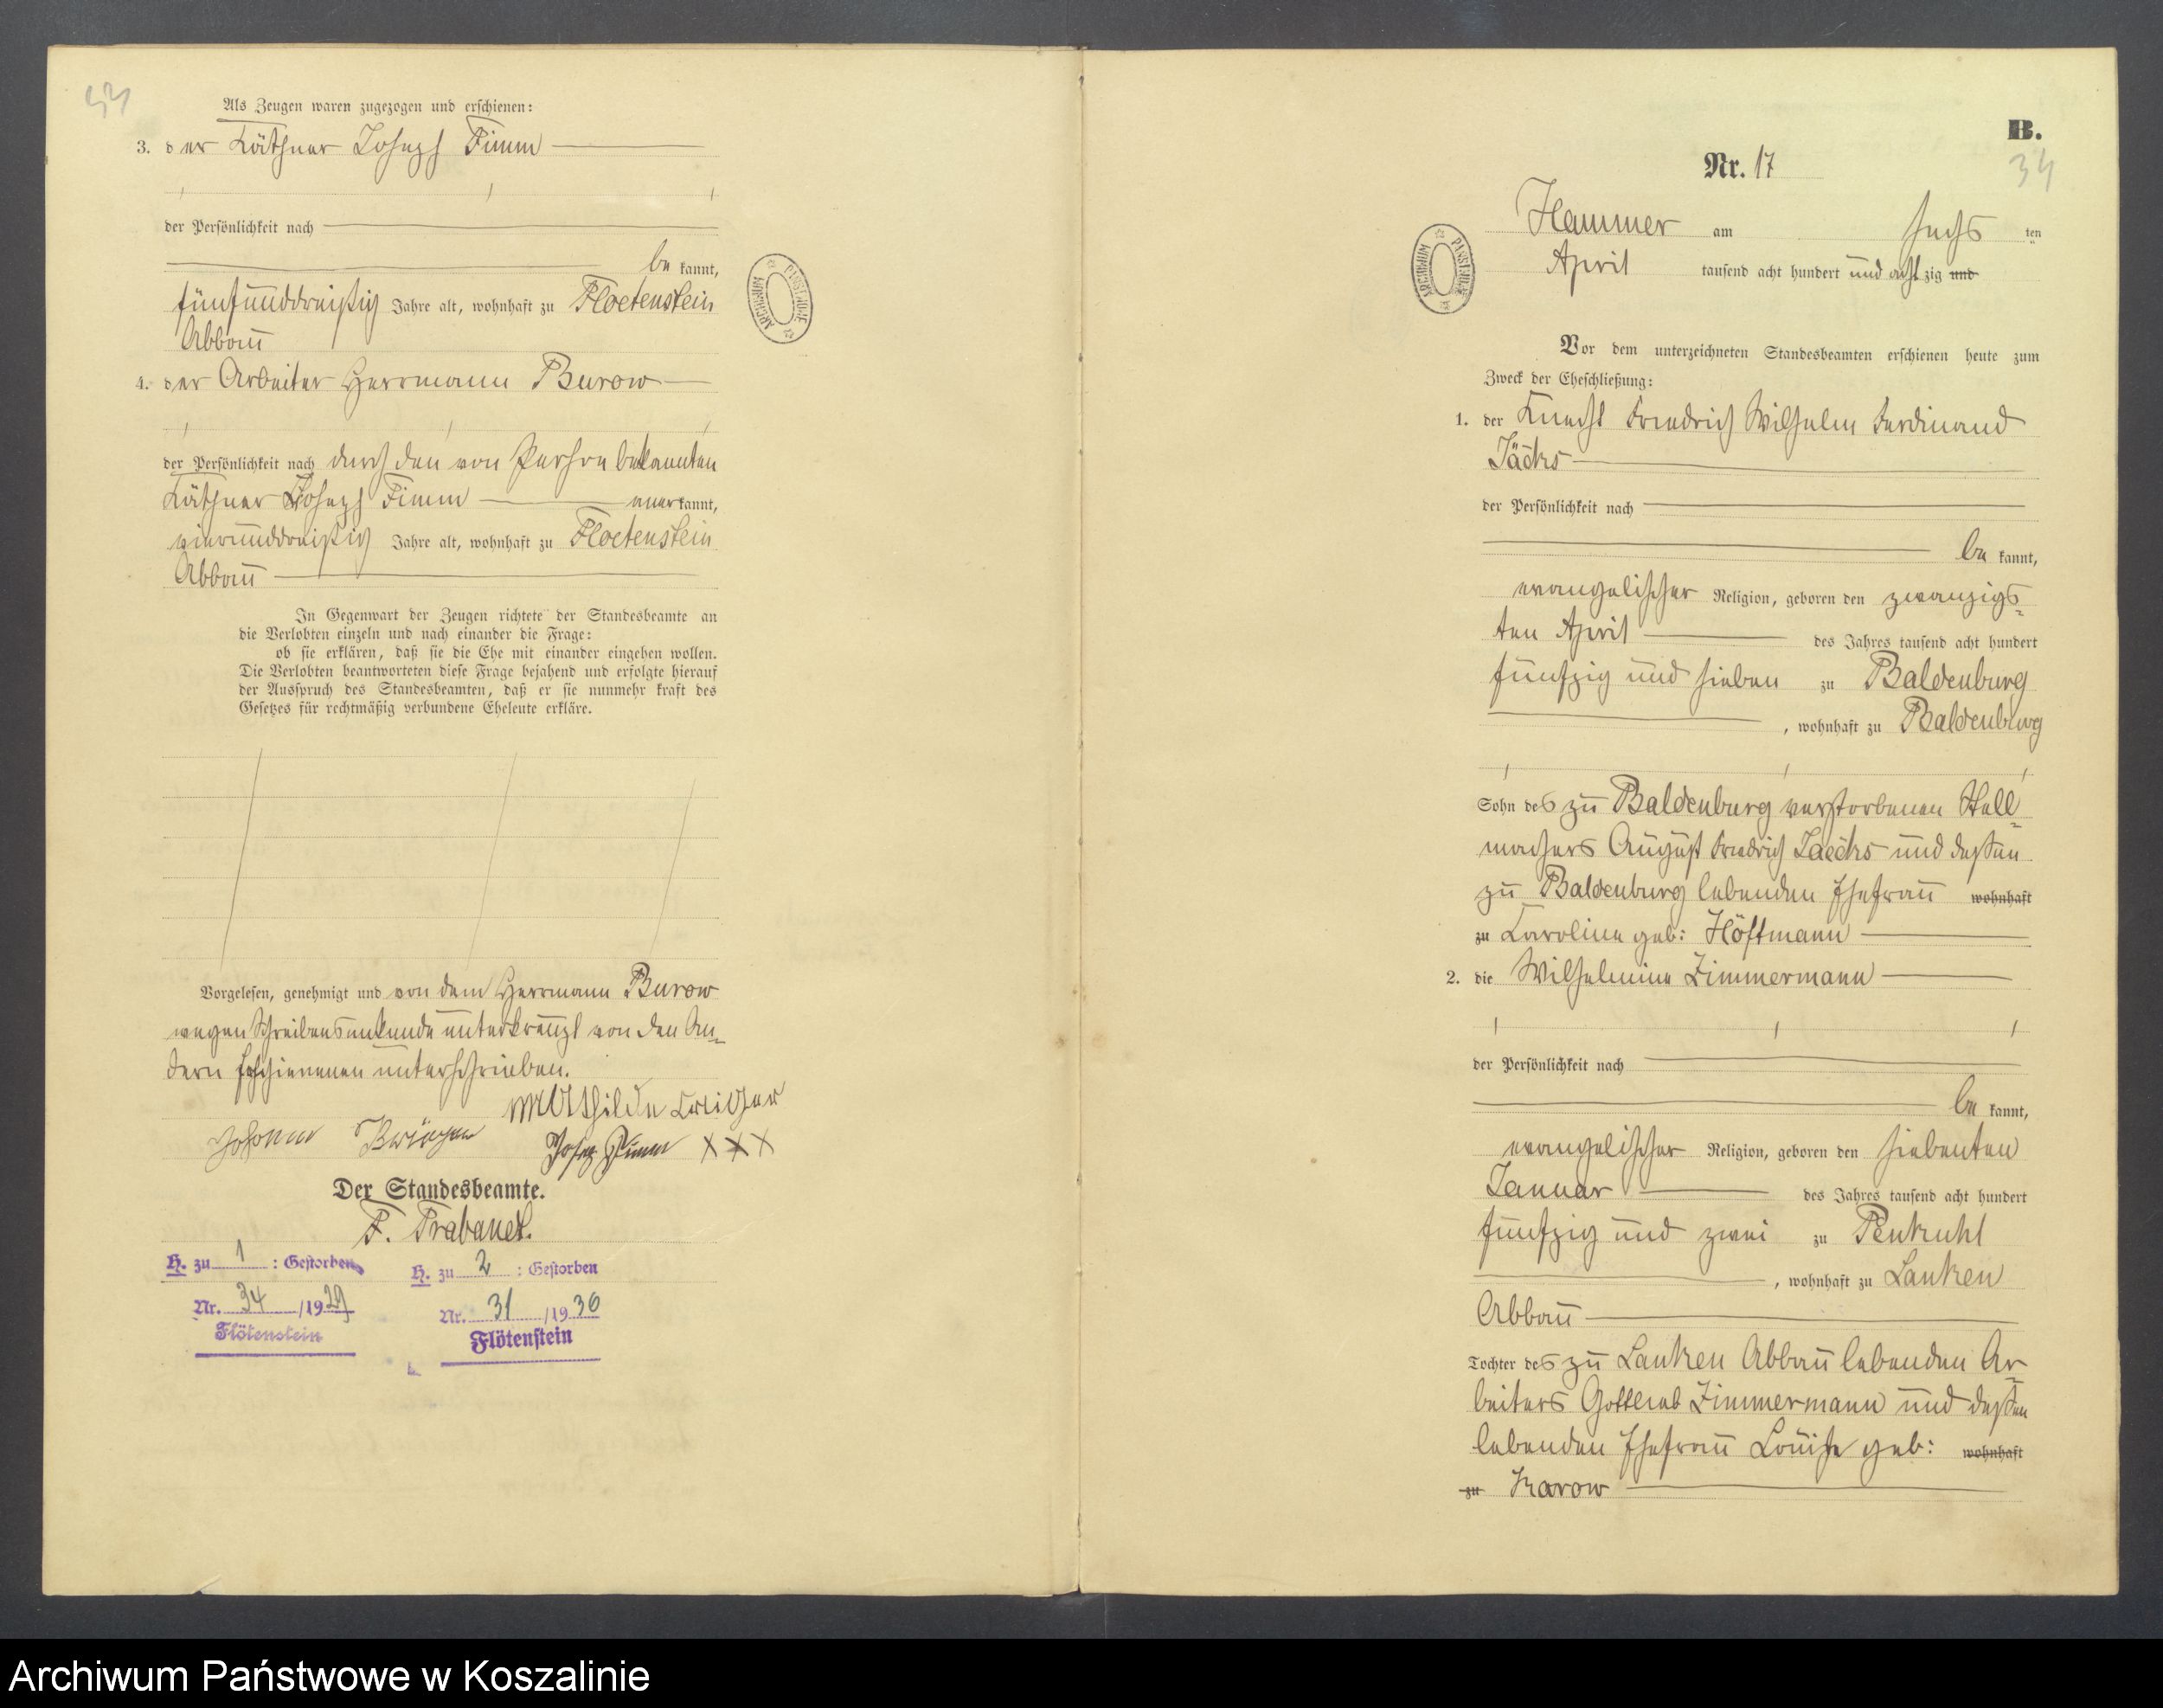 Als Zeugen waren zugezogen und erschienen:
3. der Käthner Joseph Timm
der Persönlichkeit nach
be kannt,
fünfunddreißig Jahre alt, wohnhaft zu Floetenstein
Abbau
4. der Arbeiter Herrmann Burow
der Persönlichkeit nach durch den von Person bekannten
Käthner Joseph Timm anerkannt,
vierunddreißig Jahre alt, wohnhaft zu Floetenstein
Abbau
In Gegenwart der Zeugen richtete der Standesbeamte an
die Verlobten einzeln und nach einander die Frage:
ob sie erklären, daß sie die Ehe mit einander eingehen wollen.
Die Verlobten beantworteten diese Frage bejahend und erfolgte hierauf
der Ausspruch des Standesbeamten, daß er sie nunmehr kraft des
Gesetzes für rechtmäßig verbundene Eheleute erkläre.
Vorgelesen, genehmigt und von dem Herrmann Burow
wegen Schreibensunkunde unterkreuzt von den An-
dern Erschienenen unterschrieben.
Mathilde
Johann Joseph Timm XXX
Der Standesbeamte.
F. Trabandt.
H. zu 1 : Gestorben
Nr. 34 /1929
Flötenstein
H. zu 2 : Gestorben
Nr. 31 /1936
Flötenstein
B.
34
Nr. 17
Hammer am sechs ten
April tausend acht hundert und acht zig und
Vor dem unterzeichneten Standesbeamten erschienen heute zum
Zweck der Eheschließung:
1. der Knecht Friedrich Wilhelm Ferdinand
Jäcks
der Persönlichkeit nach
be kannt,
evangelischer Religion, geboren den zwanzigs-
ten April des Jahres tausend acht hundert
fünfzig und sieben zu Baldenburg
, wohnhaft zu Baldenburg
Sohn des zu Baldenburg verstorbenen Stell-
machers August Friedrich Jaecks und dessen
zu Baldenburg lebenden Ehefrau wohnhaft
zu Karoline geb: Höftmann
2. die Wilhelmine Zimmermann
der Persönlichkeit nach
be kannt,
evangelischer Religion, geboren den siebenten
Januar des Jahres tausend acht hundert
fünfzig und zwei zu Penkuhl
, wohnhaft zu Lanken
Abbau
Tochter des zu Lanken Abbau lebenden Ar-
beiters Gottlieb Zimmermann und dessen
lebenden Ehefrau Louise geb: wohnhaft
zu Karow
ARCHIWUM PAŃSTWOWE
ARCHIWUM PAŃSTWOWE
Archiwum Państwowe w Koszalinie